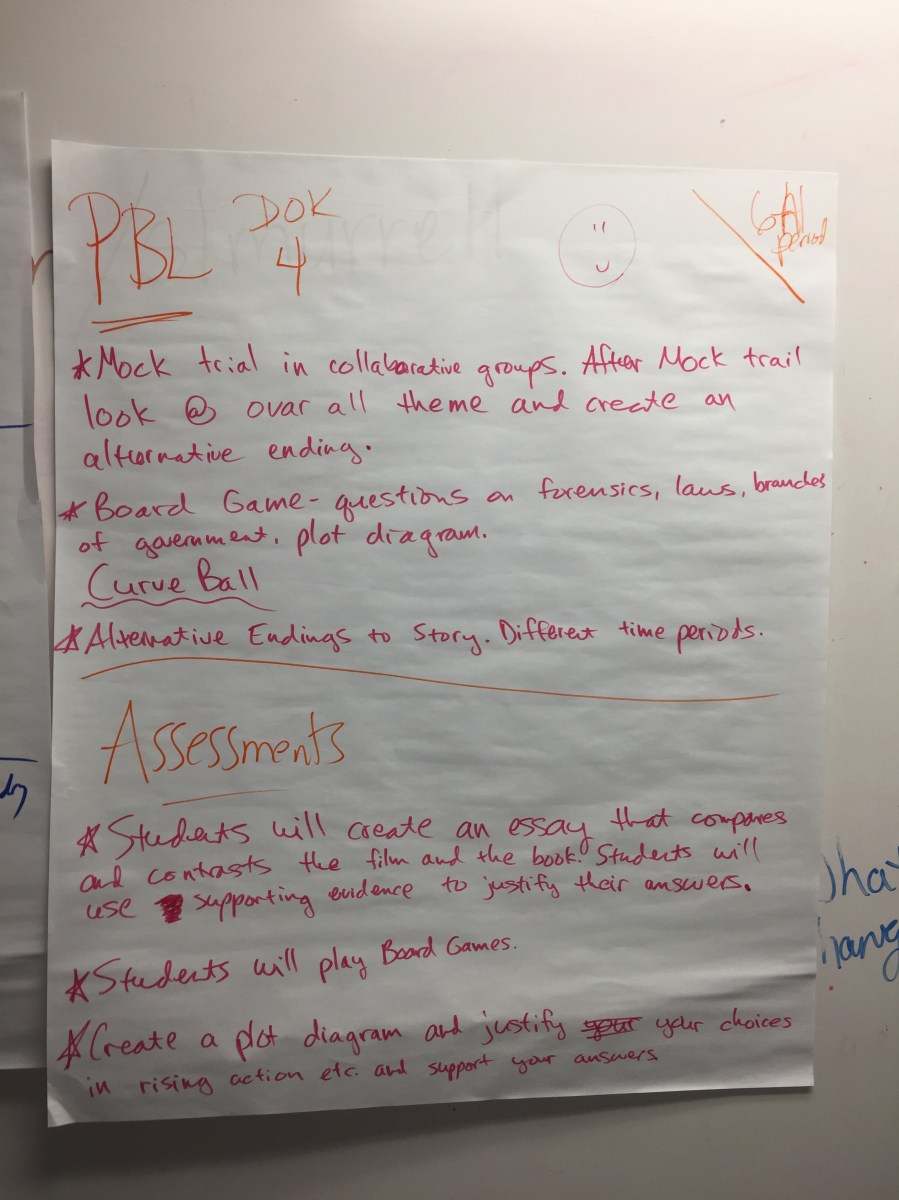 PBL DOK
4
period
*Mock trial in collabarative groups. After Mock trail
look @ ovar all theme and create an
alternative ending.
*Board Game-questions on forensics, laws, branches
of government, plot diagram.
Curve Ball
*Alternative Endings to Story. Different time periods.
Assessments
*Students will create an essay that compares
and contrasts the film and the book. Students will
use supporting evidence to justify their answers.
*Students will play Board Games.
*Create a plot diagram and justify your choices
in rising action etc. and support your answers